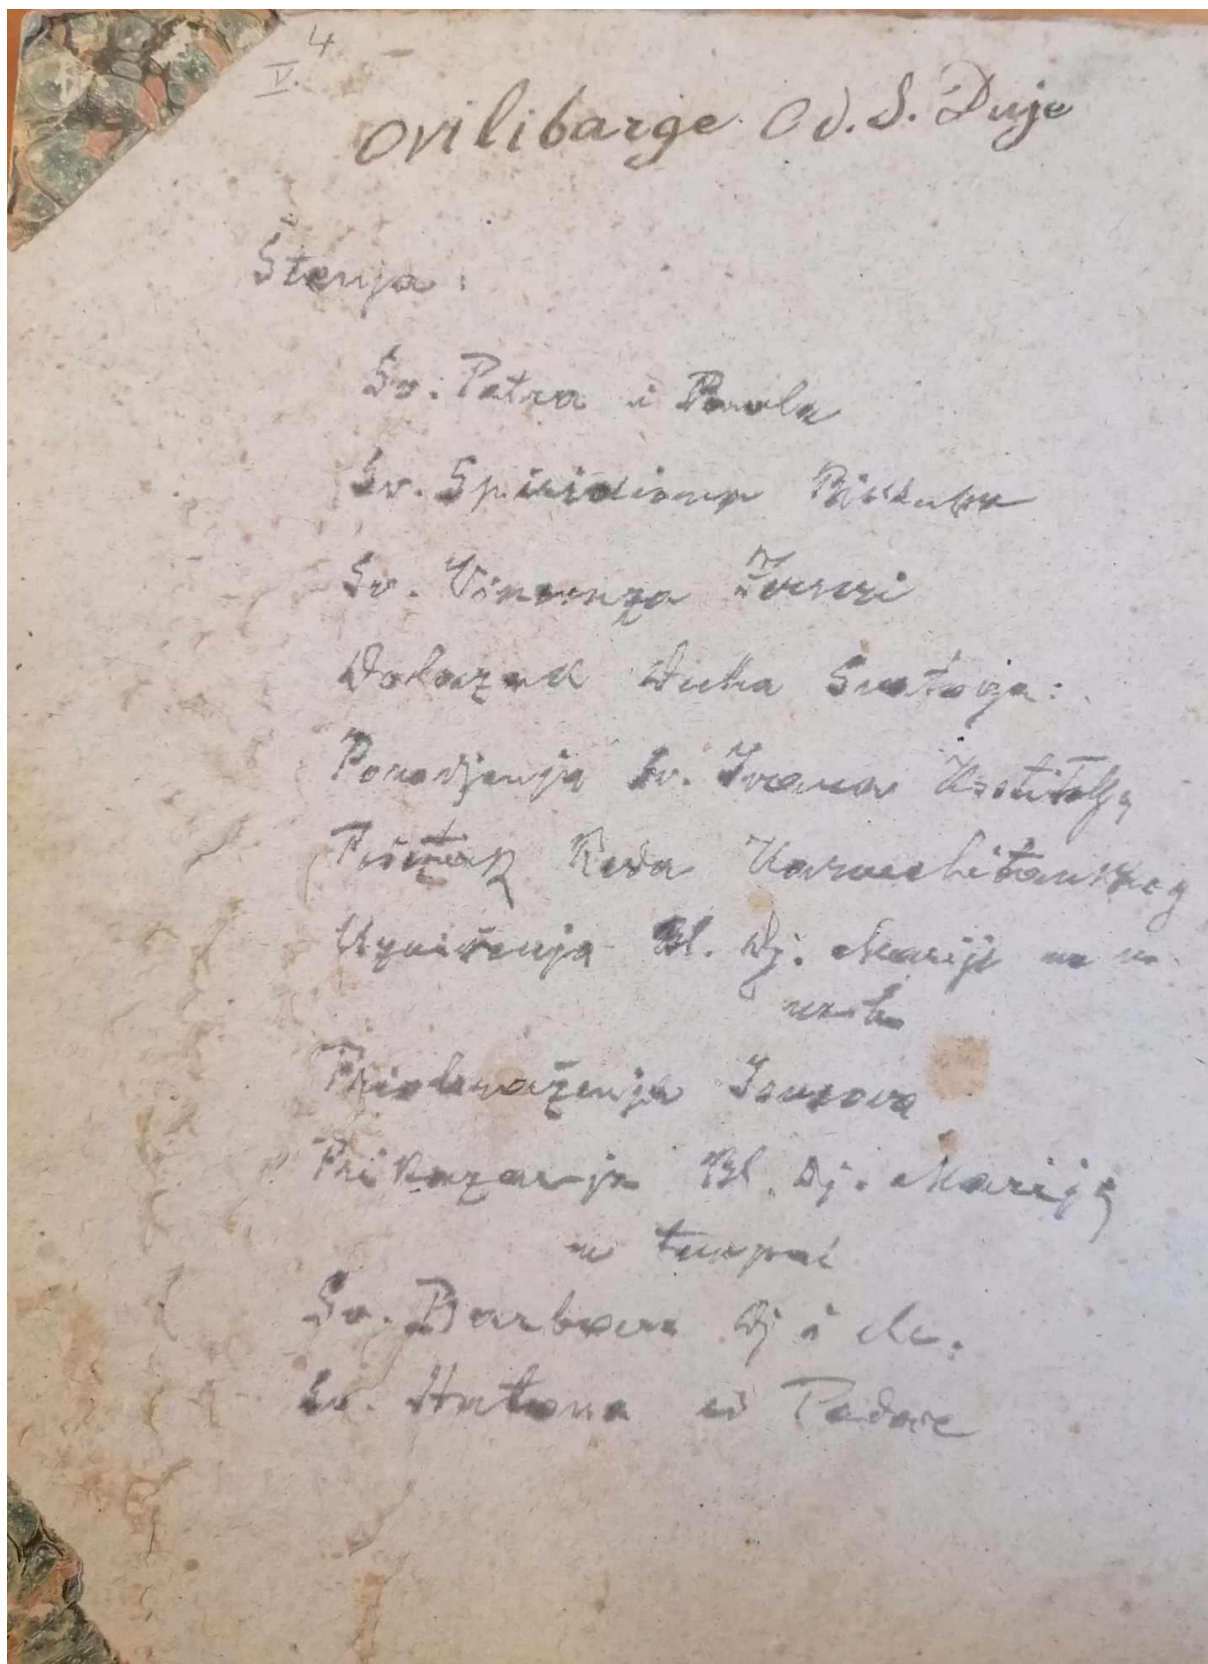 4
V.
ovilibarge Od. S. Duje
Štenja:
Sv. Petra i Pavla
Sv. Spiridiona Biskupa
Sv. Vincenza Fereri
Dolazak Duha Svetoga:
Porodjenja Sv. Ivana Krstitelja
Početak Reda Karmelitanskog
Uznešenja Bl. Dj. Marije na
Priobraženja Isusova
Prikazanja Bl. Dj. Marije
u templ
Sv. Barbare Dj i M.
Sv. Antona od Padove